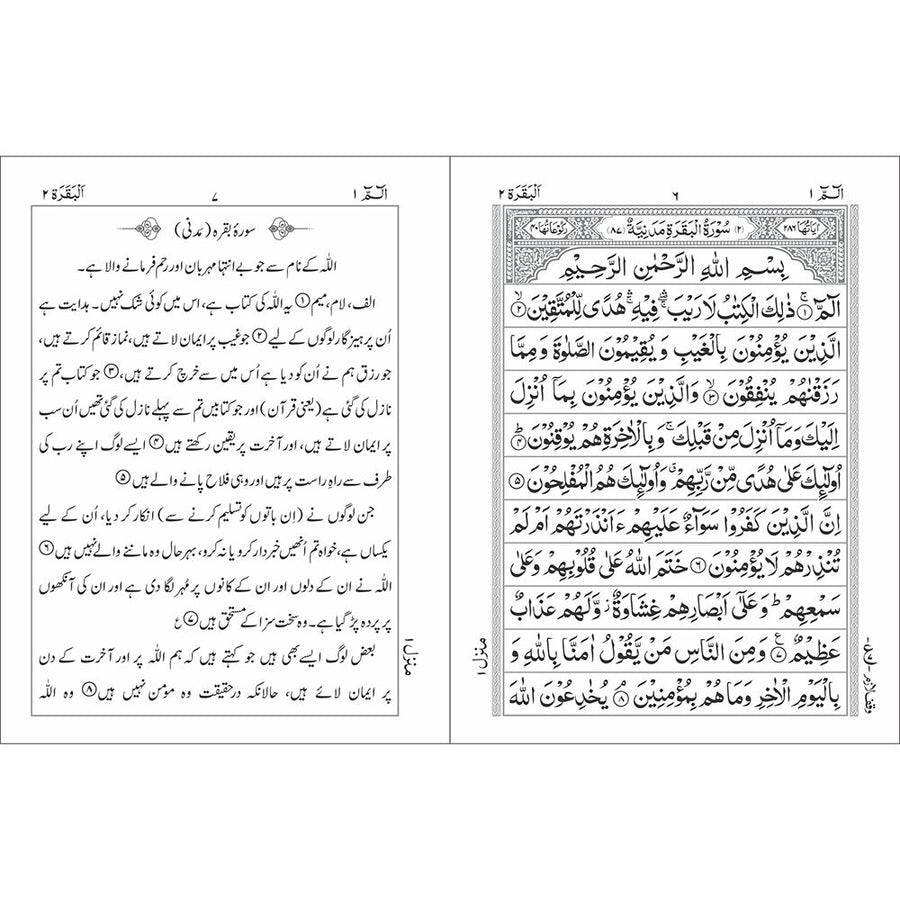 الٓمّٓ ١
٦
اَلْبَقَرَة ٢
اٰيَاتُهَا ٢٨٦
(٢) سُوْرَةُ الْبَقَرَةِ مَدَنِيَّةٌ (٨٧)
رُكُوْعَاتُهَا ٤٠
بِسْمِ اللّٰهِ الرَّحْمٰنِ الرَّحِيْمِ
الٓمّٓ ۚ ١ ذٰلِكَ الْكِتٰبُ لَا رَيْبَ ۛ فِيْهِ ۛ هُدًى لِّلْمُتَّقِيْنَ ۙ ٢
الَّذِيْنَ يُؤْمِنُوْنَ بِالْغَيْبِ وَ يُقِيْمُوْنَ الصَّلٰوةَ وَ مِمَّا
رَزَقْنٰهُمْ يُنْفِقُوْنَ ۙ ٣ وَالَّذِيْنَ يُؤْمِنُوْنَ بِمَاۤ اُنْزِلَ
اِلَيْكَ وَمَاۤ اُنْزِلَ مِنْ قَبْلِكَ ۚ وَبِالْاٰخِرَةِ هُمْ يُوْقِنُوْنَ ؕ ٤
اُولٰٓئِكَ عَلٰى هُدًى مِّنْ رَّبِّهِمْ ۗ وَاُولٰٓئِكَ هُمُ الْمُفْلِحُوْنَ ٥
اِنَّ الَّذِيْنَ كَفَرُوْا سَوَآءٌ عَلَيْهِمْ ءَاَنْذَرْتَهُمْ اَمْ لَمْ
تُنْذِرْهُمْ لَا يُؤْمِنُوْنَ ٦ خَتَمَ اللّٰهُ عَلٰى قُلُوْبِهِمْ وَعَلٰى
سَمْعِهِمْ ؕ وَ عَلٰۤى اَبْصَارِهِمْ غِشَاوَةٌ ز وَّلَهُمْ عَذَابٌ
عَظِيْمٌ ٧ ع وَمِنَ النَّاسِ مَنْ يَّقُوْلُ اٰمَنَّا بِاللّٰهِ وَ
بِالْيَوْمِ الْاٰخِرِ وَمَا هُمْ بِمُؤْمِنِيْنَ ۘ ٨ يُخٰدِعُوْنَ اللّٰهَ
منزل ١
الٓمّٓ ١
٧
اَلْبَقَرَة ٢
سورۂ بقرہ (مَدنی)
اللہ کے نام سے جو بے انتہا مہربان اور رحم فرمانے والا ہے۔
الف، لام، میم ١ یہ اللہ کی کتاب ہے، اس میں کوئی شک نہیں۔ ہدایت ہے
اُن پرہیز گار لوگوں کے لیے ٢ جو غیب پر ایمان لاتے ہیں، نماز قائم کرتے ہیں،
جو رزق ہم نے اُن کو دیا ہے اُس میں سے خرچ کرتے ہیں، ٣ جو کتاب تم پر
نازل کی گئی ہے (یعنی قرآن) اور جو کتابیں تم سے پہلے نازل کی گئی تھیں اُن سب
پر ایمان لاتے ہیں، اور آخرت پر یقین رکھتے ہیں ٤ ایسے لوگ اپنے رب کی
طرف سے راہِ راست پر ہیں اور وہی فلاح پانے والے ہیں ٥
جن لوگوں نے (اِن باتوں کو تسلیم کرنے سے) انکار کر دیا، اُن کے لیے
یکساں ہے، خواہ تم اُنھیں خبردار کرو یا نہ کرو، بہرحال وہ ماننے والے نہیں ہیں ٦
اللہ نے ان کے دلوں اور ان کے کانوں پر مُہر لگا دی ہے اور ان کی آنکھوں
پر پردہ پڑ گیا ہے۔ وہ سخت سزا کے مستحق ہیں ٧ ع
بعض لوگ ایسے بھی ہیں جو کہتے ہیں کہ ہم اللہ پر اور آخرت کے دن
پر ایمان لائے ہیں، حالانکہ درحقیقت وہ مومن نہیں ہیں ٨ وہ اللہ
منزل ١